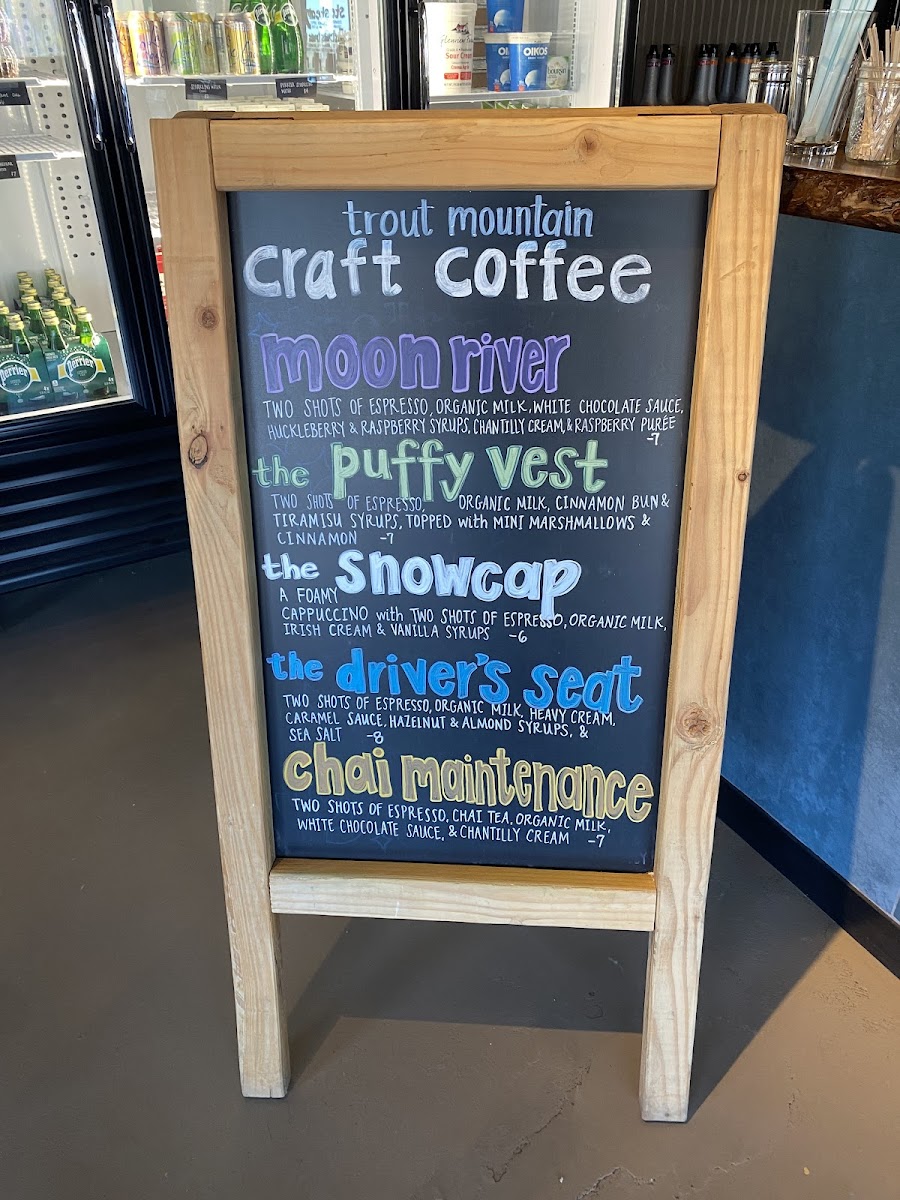 Sour Cream
OIKOS
OIKOS
Perrier
Perrier
trout mountain
craft coffee
moon river
TWO SHOTS OF ESPRESSO, ORGANIC MILK, WHITE CHOCOLATE SAUCE,
HUCKLEBERRY & RASPBERRY SYRUPS, CHANTILLY CREAM, & RASPBERRY PURÉE
-7
the puffy vest
TWO SHOTS OF ESPRESSO, ORGANIC MILK, CINNAMON BUN &
TIRAMISU SYRUPS, TOPPED with MINI MARSHMALLOWS &
CINNAMON -7
the snowcap
A FOAMY
CAPPUCCINO with TWO SHOTS OF ESPRESSO, ORGANIC MILK,
IRISH CREAM & VANILLA SYRUPS -6
the driver's seat
TWO SHOTS OF ESPRESSO, ORGANIC MILK, HEAVY CREAM,
CARAMEL SAUCE, HAZELNUT & ALMOND SYRUPS, &
SEA SALT -8
chai maintenance
TWO SHOTS OF ESPRESSO, CHAI TEA, ORGANIC MILK,
WHITE CHOCOLATE SAUCE, & CHANTILLY CREAM -7